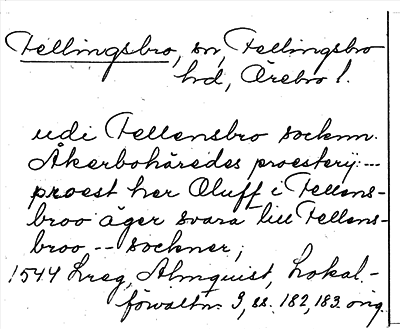 Fellingsbro, sn, Fellingsbro
hd, Örebro l.
udi Fellensbro socknn.
Åkerbohäredes proestery: --
proest her Oluff i Fellens-
broo äger svara till Fellens-
broo -- sockner,
1544 Lreg, Almquist, Lokal-
förvaltn. 3, ss. 182, 183. orig.